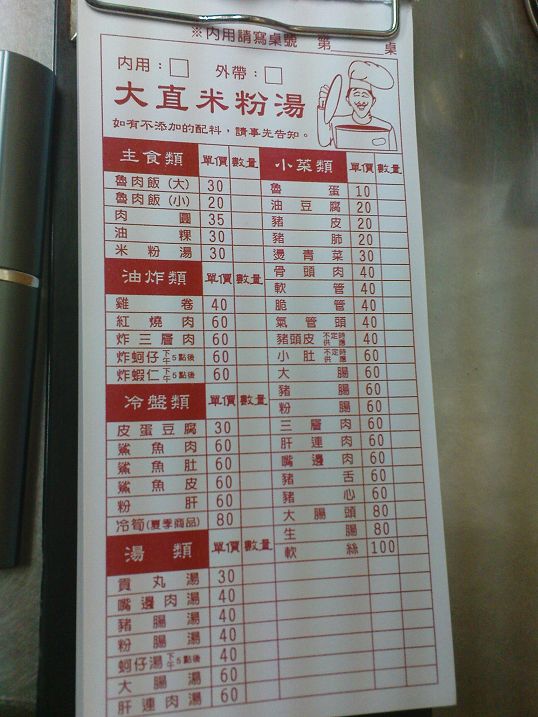 ※內用請寫桌號 第 桌
內用：□ 外帶：□
大直米粉湯
如有不添加的配料，請事先告知。
主食類 單價 數量
魯肉飯(大) 30
魯肉飯(小) 20
肉圓 35
油粿 30
米粉湯 30
油炸類 單價 數量
雞卷 40
紅燒肉 60
炸三層肉 60
炸蚵仔下午5點後 60
炸蝦仁下午5點後 60
冷盤類 單價 數量
皮蛋豆腐 30
鯊魚肉 60
鯊魚肚 60
鯊魚皮 60
粉肝 60
冷筍(夏季商品) 80
湯類 單價 數量
貢丸湯 30
嘴邊肉湯 40
豬腸湯 40
粉腸湯 40
蚵仔湯下午5點後 40
大腸湯 60
肝連肉湯 60
小菜類 單價 數量
魯蛋 10
油豆腐 20
豬皮 20
豬肺 20
燙青菜 30
骨頭肉 40
軟管 40
脆管 40
氣管頭 40
豬頭皮不定時供應 40
小肚不定時供應 60
大腸 60
豬腸 60
粉腸 60
三層肉 60
肝連肉 60
嘴邊肉 60
豬舌 60
豬心 60
大腸頭 80
生腸 80
軟絲 100